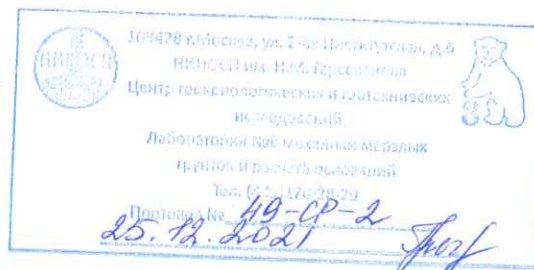 109428 г.Москва, ул. 2-ая Институтская, д.6
НИИОСП
НИИОСП им. Н.М. Герсеванова
Центр геокриологических и геотехнических
исследований
Лаборатория №6 механики мерзлых
грунтов и расчета оснований
Тел.
Протокол № 49-СР-2
25.12.2021